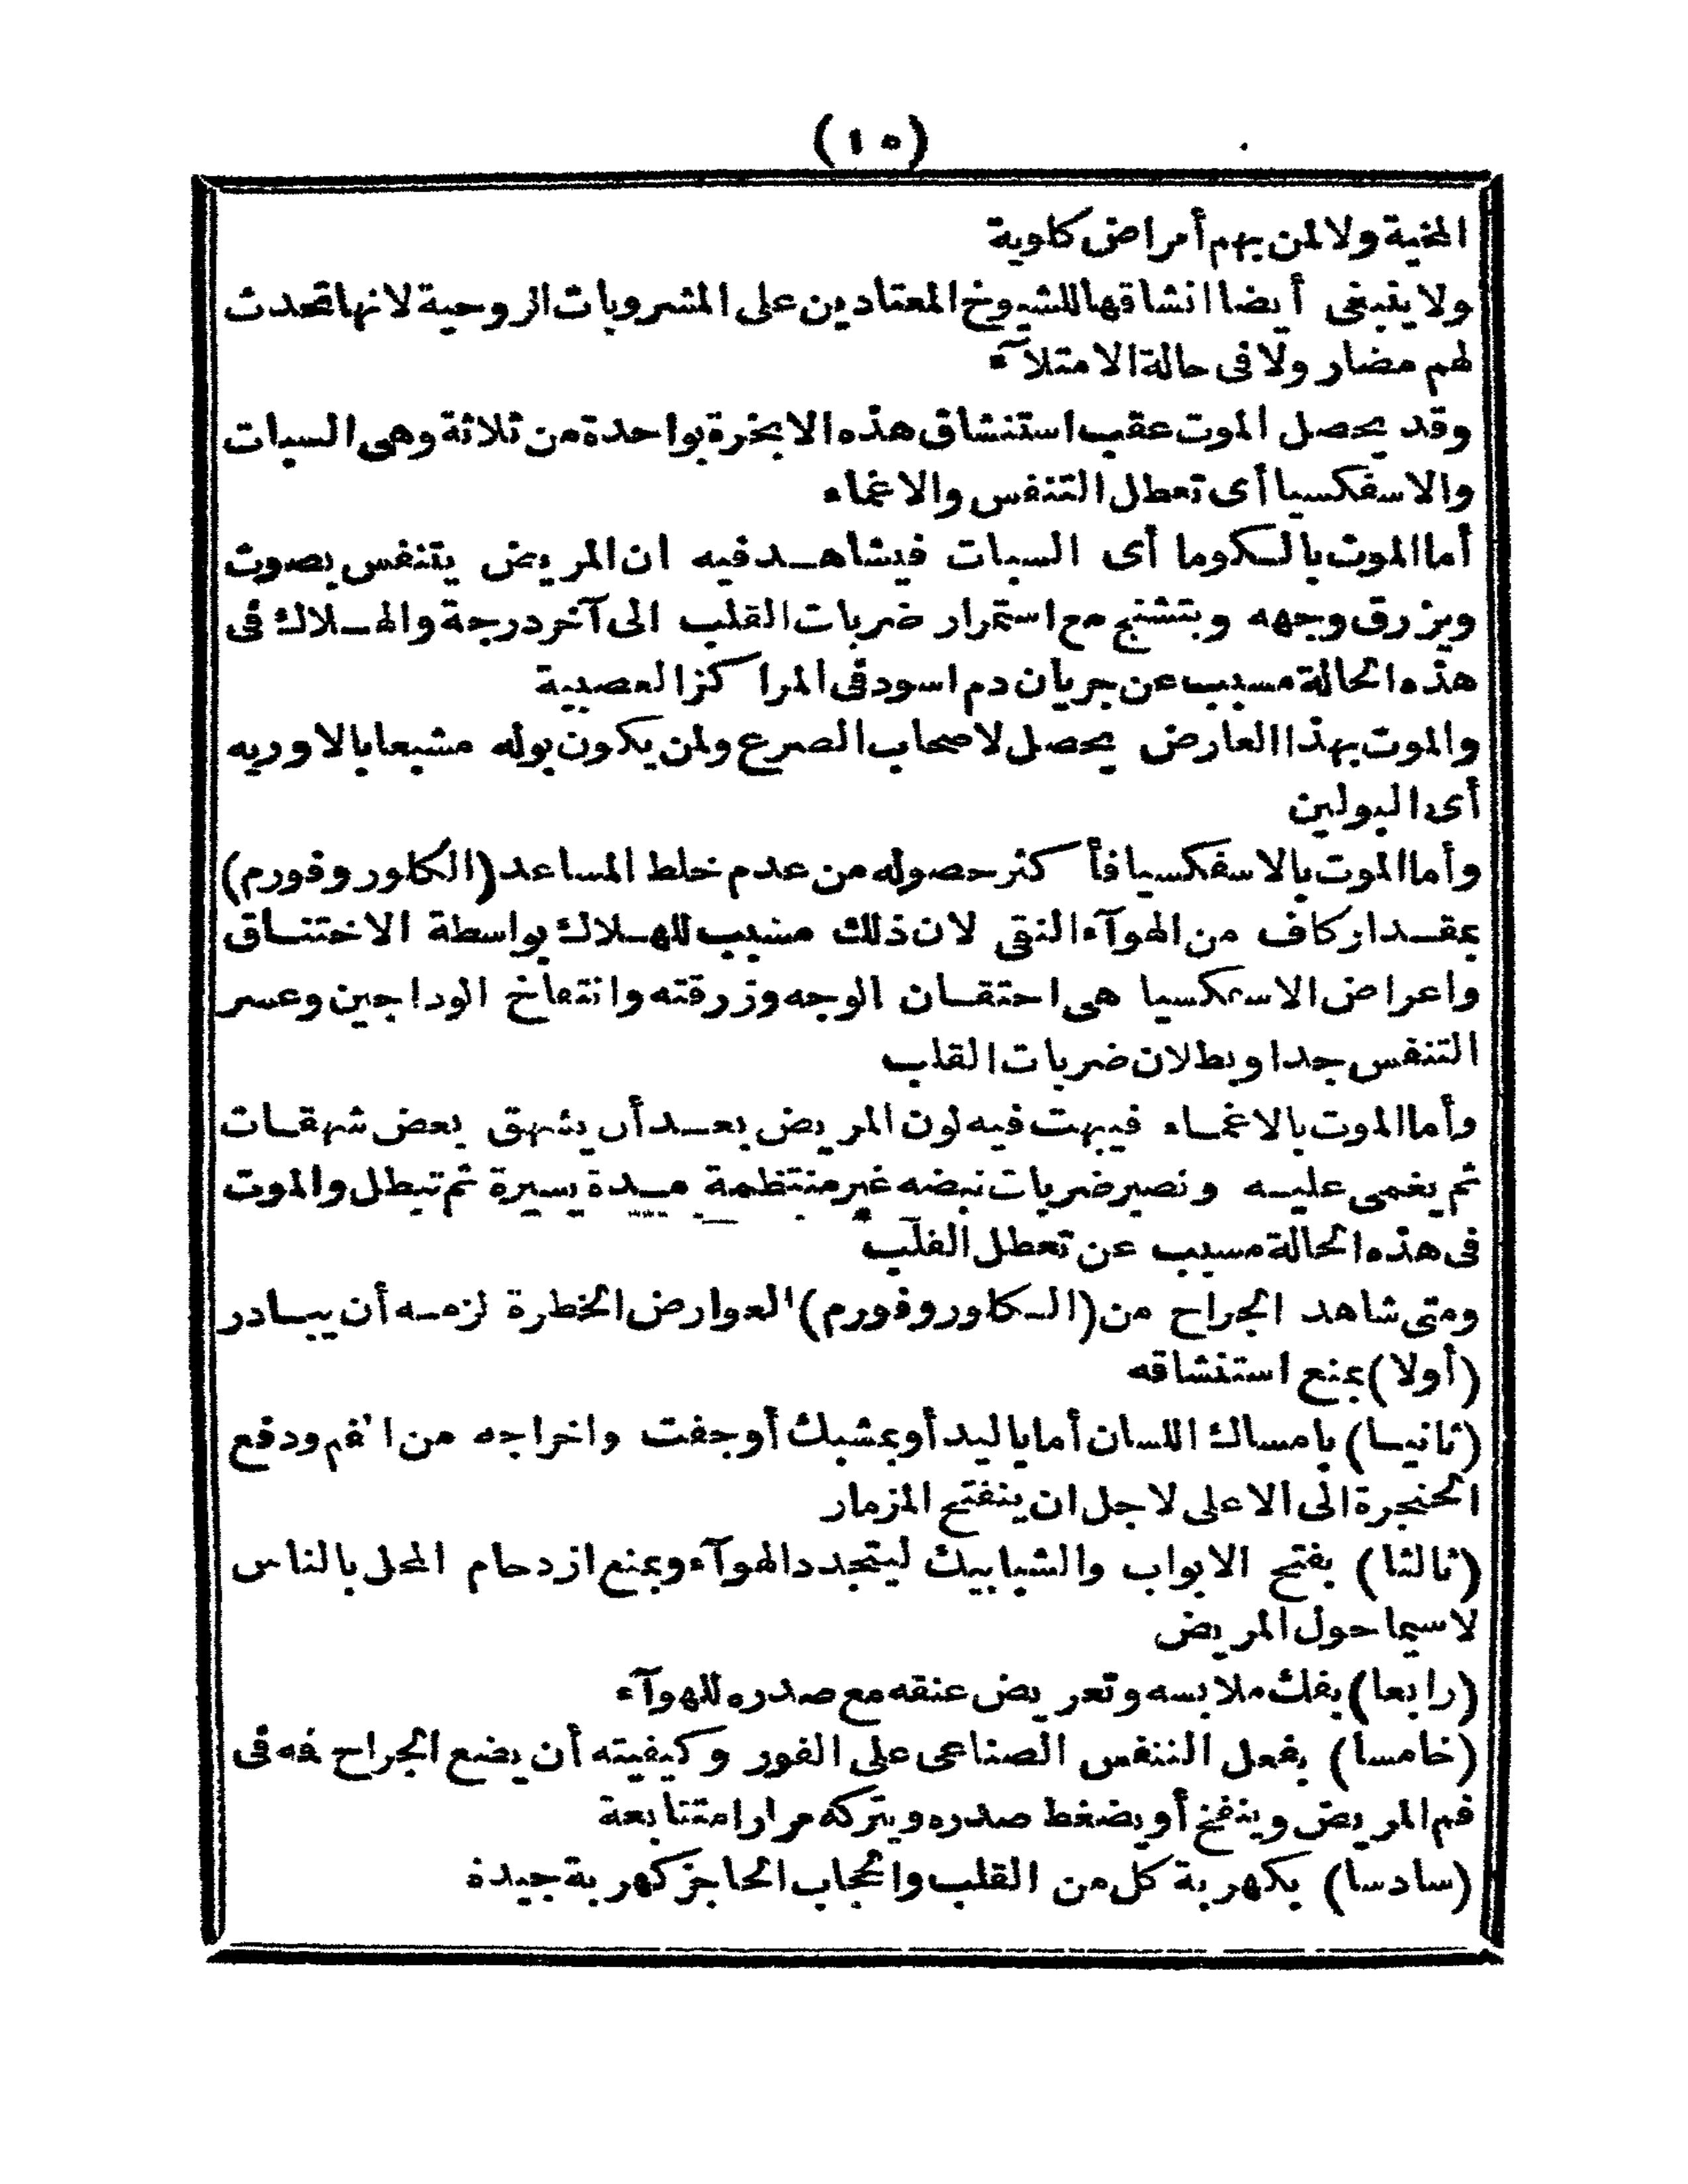 (١٥)
المخية ولا لمن بهم أمراض كلوية
ولا ينبغى أيضا انشاقها للشيوخ المعتادين على المشروبات الروحية لانها تحدث
لهم مضار ولا فى حالة الامتلآء
وقد يحصل الموت عقب استنشاق هذه الابخرة بواحدة من ثلاثة وهى السبات
والاسفكسيا أى تعطل التنفس والاغماء
أما الموت بالكوما أى السبات فيشاهد فيه ان المريض يتنفس بصوت
ويزرق وجهه ويتشنج مع استمرار ضربات القلب الى آخر درجة والهلاك فى
هذه الحالة مسبب عن جريان دم اسود فى المراكز العصبية
والموت بهذا العارض يحصل لاصحاب الصرع ولمن يكون بوله مشبعا بالاوريه
أى البولين
وأما الموت بالاسفكسيا فأكثر حصوله من عدم خلط المساعد (الكلوروفورم)
بمقدار كاف من الهوآء النقى لان ذلك مسبب للهلاك بواسطة الاختناق
واعراض الاسفكسيا هى احتقان الوجه وزرقته وانتفاخ الوداجين وعسر
التنفس جدا وبطلان ضربات القلب
وأما الموت بالاغماء فيبهت فيه لون المريض بعد أن يشهق بعض شهقات
ثم يغمى عليه وتصير ضربات نبضه غير منتظمة مدة يسيرة ثم تبطل والموت
فى هذه الحالة مسبب عن تعطل القلب
ومتى شاهد الجراح من (الكلوروفورم) العوارض الخطرة لزمه أن يبادر
(أولا) بمنع استنشاقه
(ثانيا) بامساك اللسان أما باليد أو بمشبك أو جفت واخراجه من الفم ودفع
الحنجرة الى الاعلى لاجل ان ينفتح المزمار
(ثالثا) بفتح الابواب والشبابيك ليتجدد الهوآء ويمنع ازدحام المحل بالناس
لاسيما حول المريض
(رابعا) بفك ملابسه وتعريض عنقه مع صدره للهوآء
(خامسا) بفعل التنفس الصناعى على الفور وكيفيته أن يضع الجراح فه فى
فم المريض وينفخ أو يضغط صدره ويتركه مرارا متتابعة
(سادسا) بكهربة كل من القلب والحجاب الحاجز كهربة جيدة